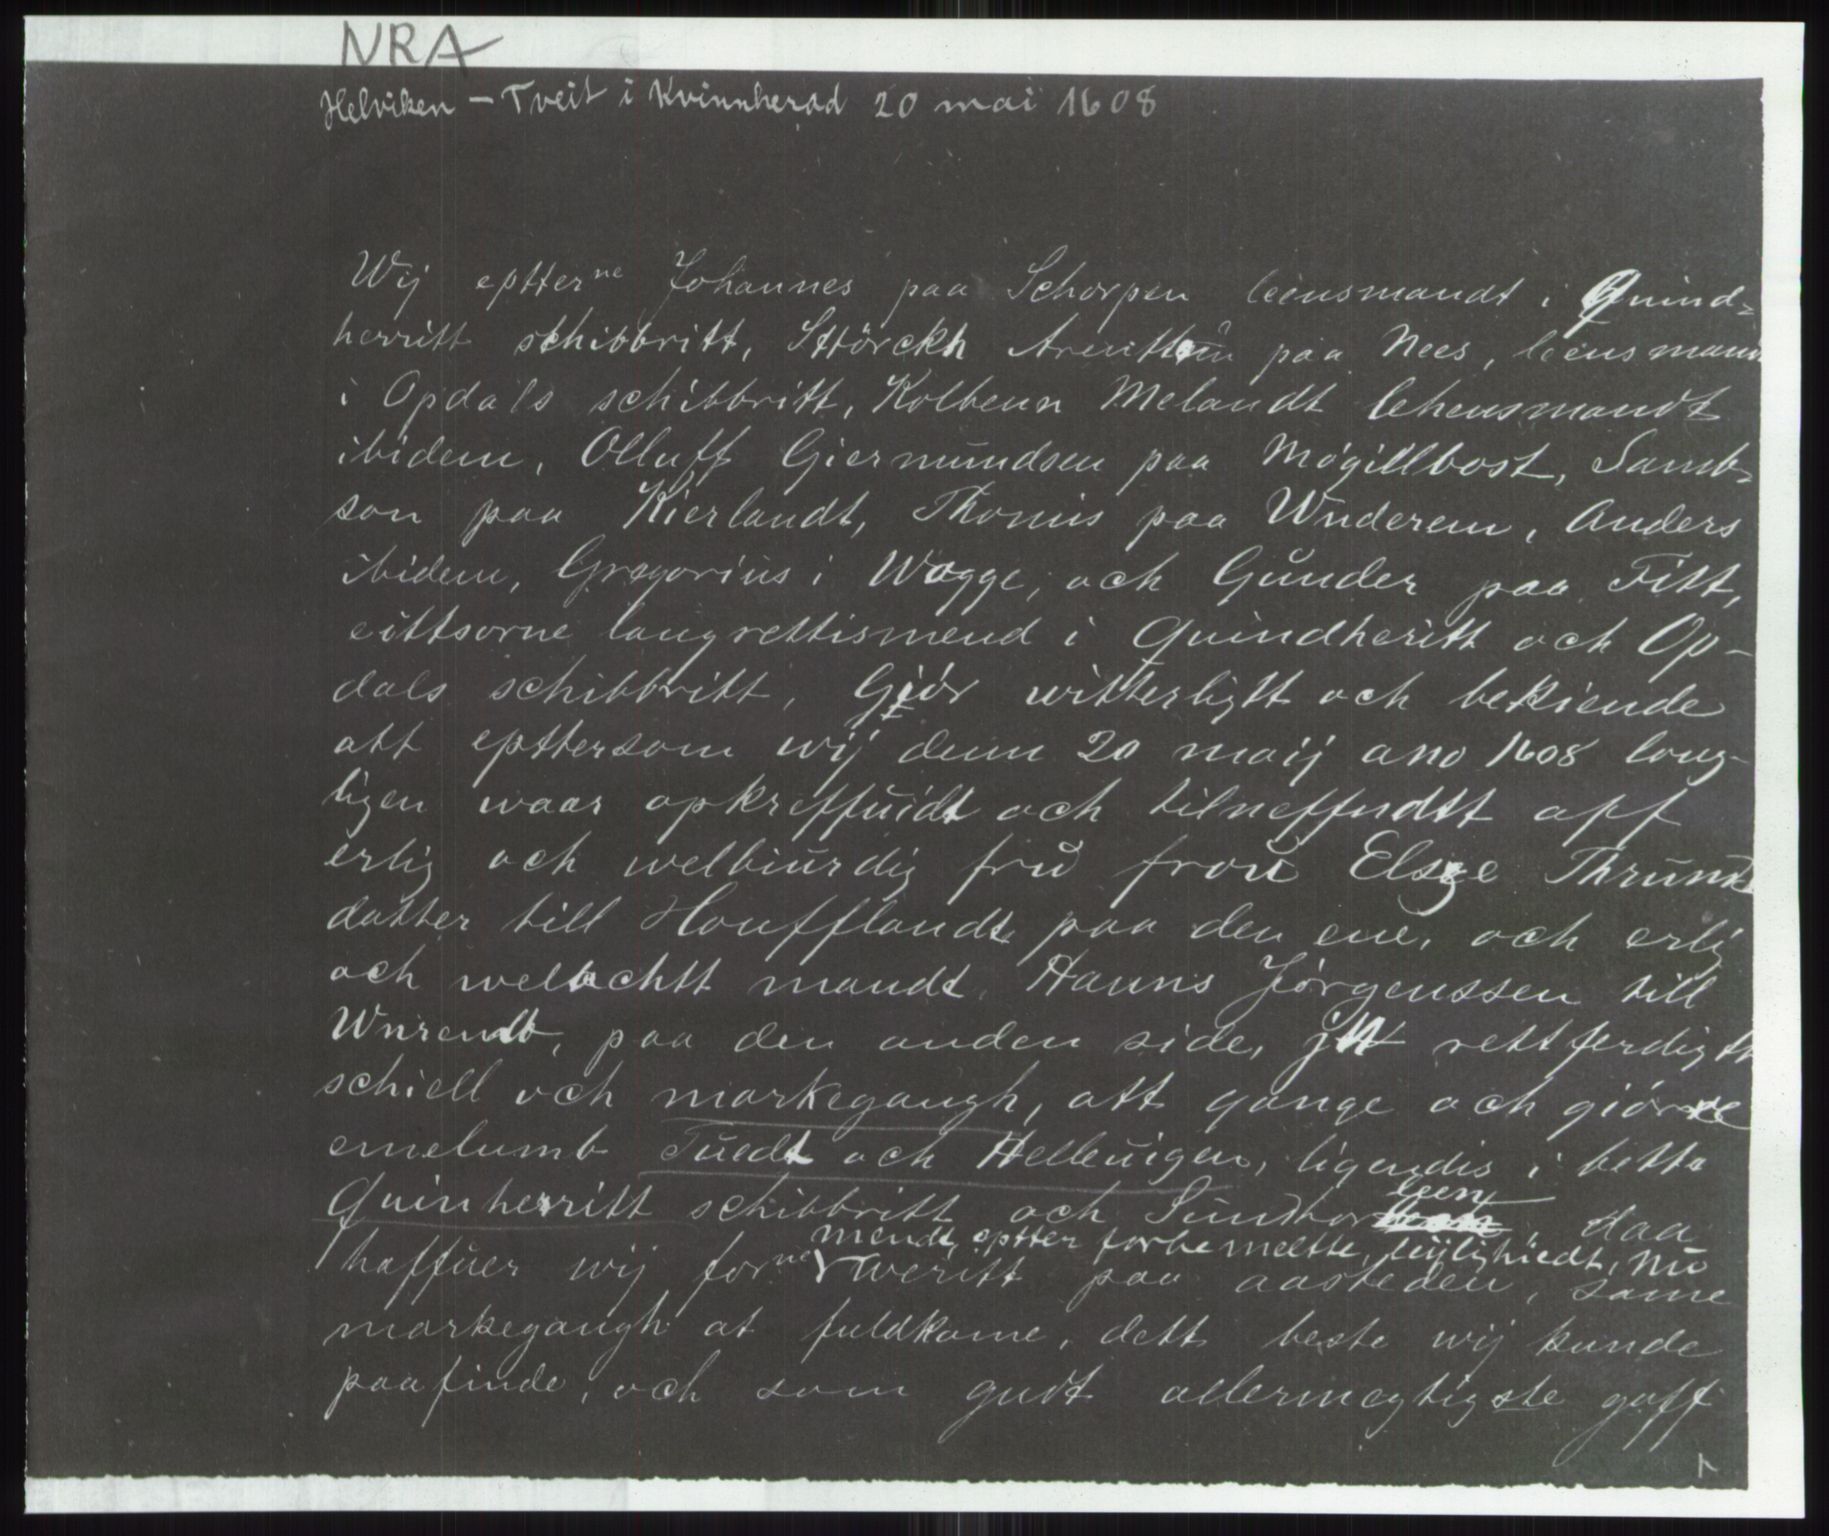 NRA
Helviken – Tveit i Kvinnherad 20 mai 1608
Wij eptterne Johannes paa Schorpen leensmandt i Quind-
herritt schibbritt, Sttörckh paa Nees, leensmann
i Opdals schibbritt, Kolbenn Melandt lehensmandt
ibidem, Olluff Giermundsen paa Møgillbost, Samb-
son paa Kierlandt, Thomis paa Wnderem, Anders
ibidem, Gregorius i Wogge, och Gŭnder paa Fitt,
eittsorne laugrettismend i Quindheritt och Op-
dals schibbritt, Giór witterligtt och bekiende
att epttersom wij denn 20 maij ano 1608 loug-
ligen waar opkreffuidt och tilneffndtt aff
erlig och welbiurdig frŭ frou Elsze Thrunds
datter till Houfflandt paa den ene, och erlig
och welachtt mandt Hanns Jørgenssen till
paa den anden side, jtt rettferdigtt
schiell och markegaugh, att gange och giórre
emelumb Tŭedt och Helleŭigen, ligendis i bette
Quinherritt schibbritt och Sŭndhor leen daa
haffuer wij forne mendt, eptter forbemeltte, leijlighiedt, nŭ
weritt paa aasteden, same
markegaugh at fuldkome, dett beste wij kunde
paafinde, och som gudt allermegtigste gaff
1